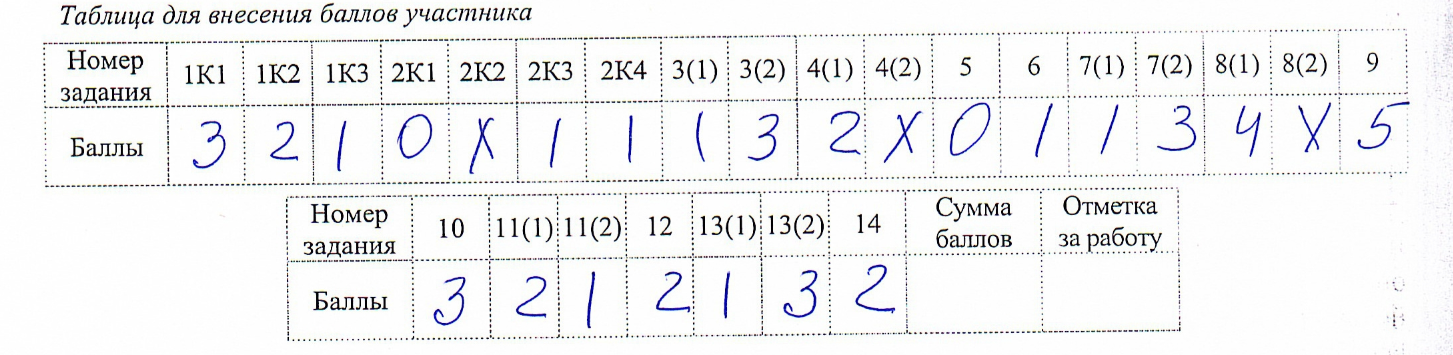 Таблица для внесения баллов участника
Номер задания 1К1 1К2 1К3 2К1 2К2 2К3 2К4 3(1) 3(2) 4(1) 4(2) 5 6 7(1) 7(2) 8(1) 8(2) 9
Баллы 3 2 1 0 X 1 1 1 3 2 X 0 1 1 3 4 X 5
Номер задания 10 11(1) 11(2) 12 13(1) 13(2) 14 Сумма баллов Отметка за работу
Баллы 3 2 1 2 1 3 2